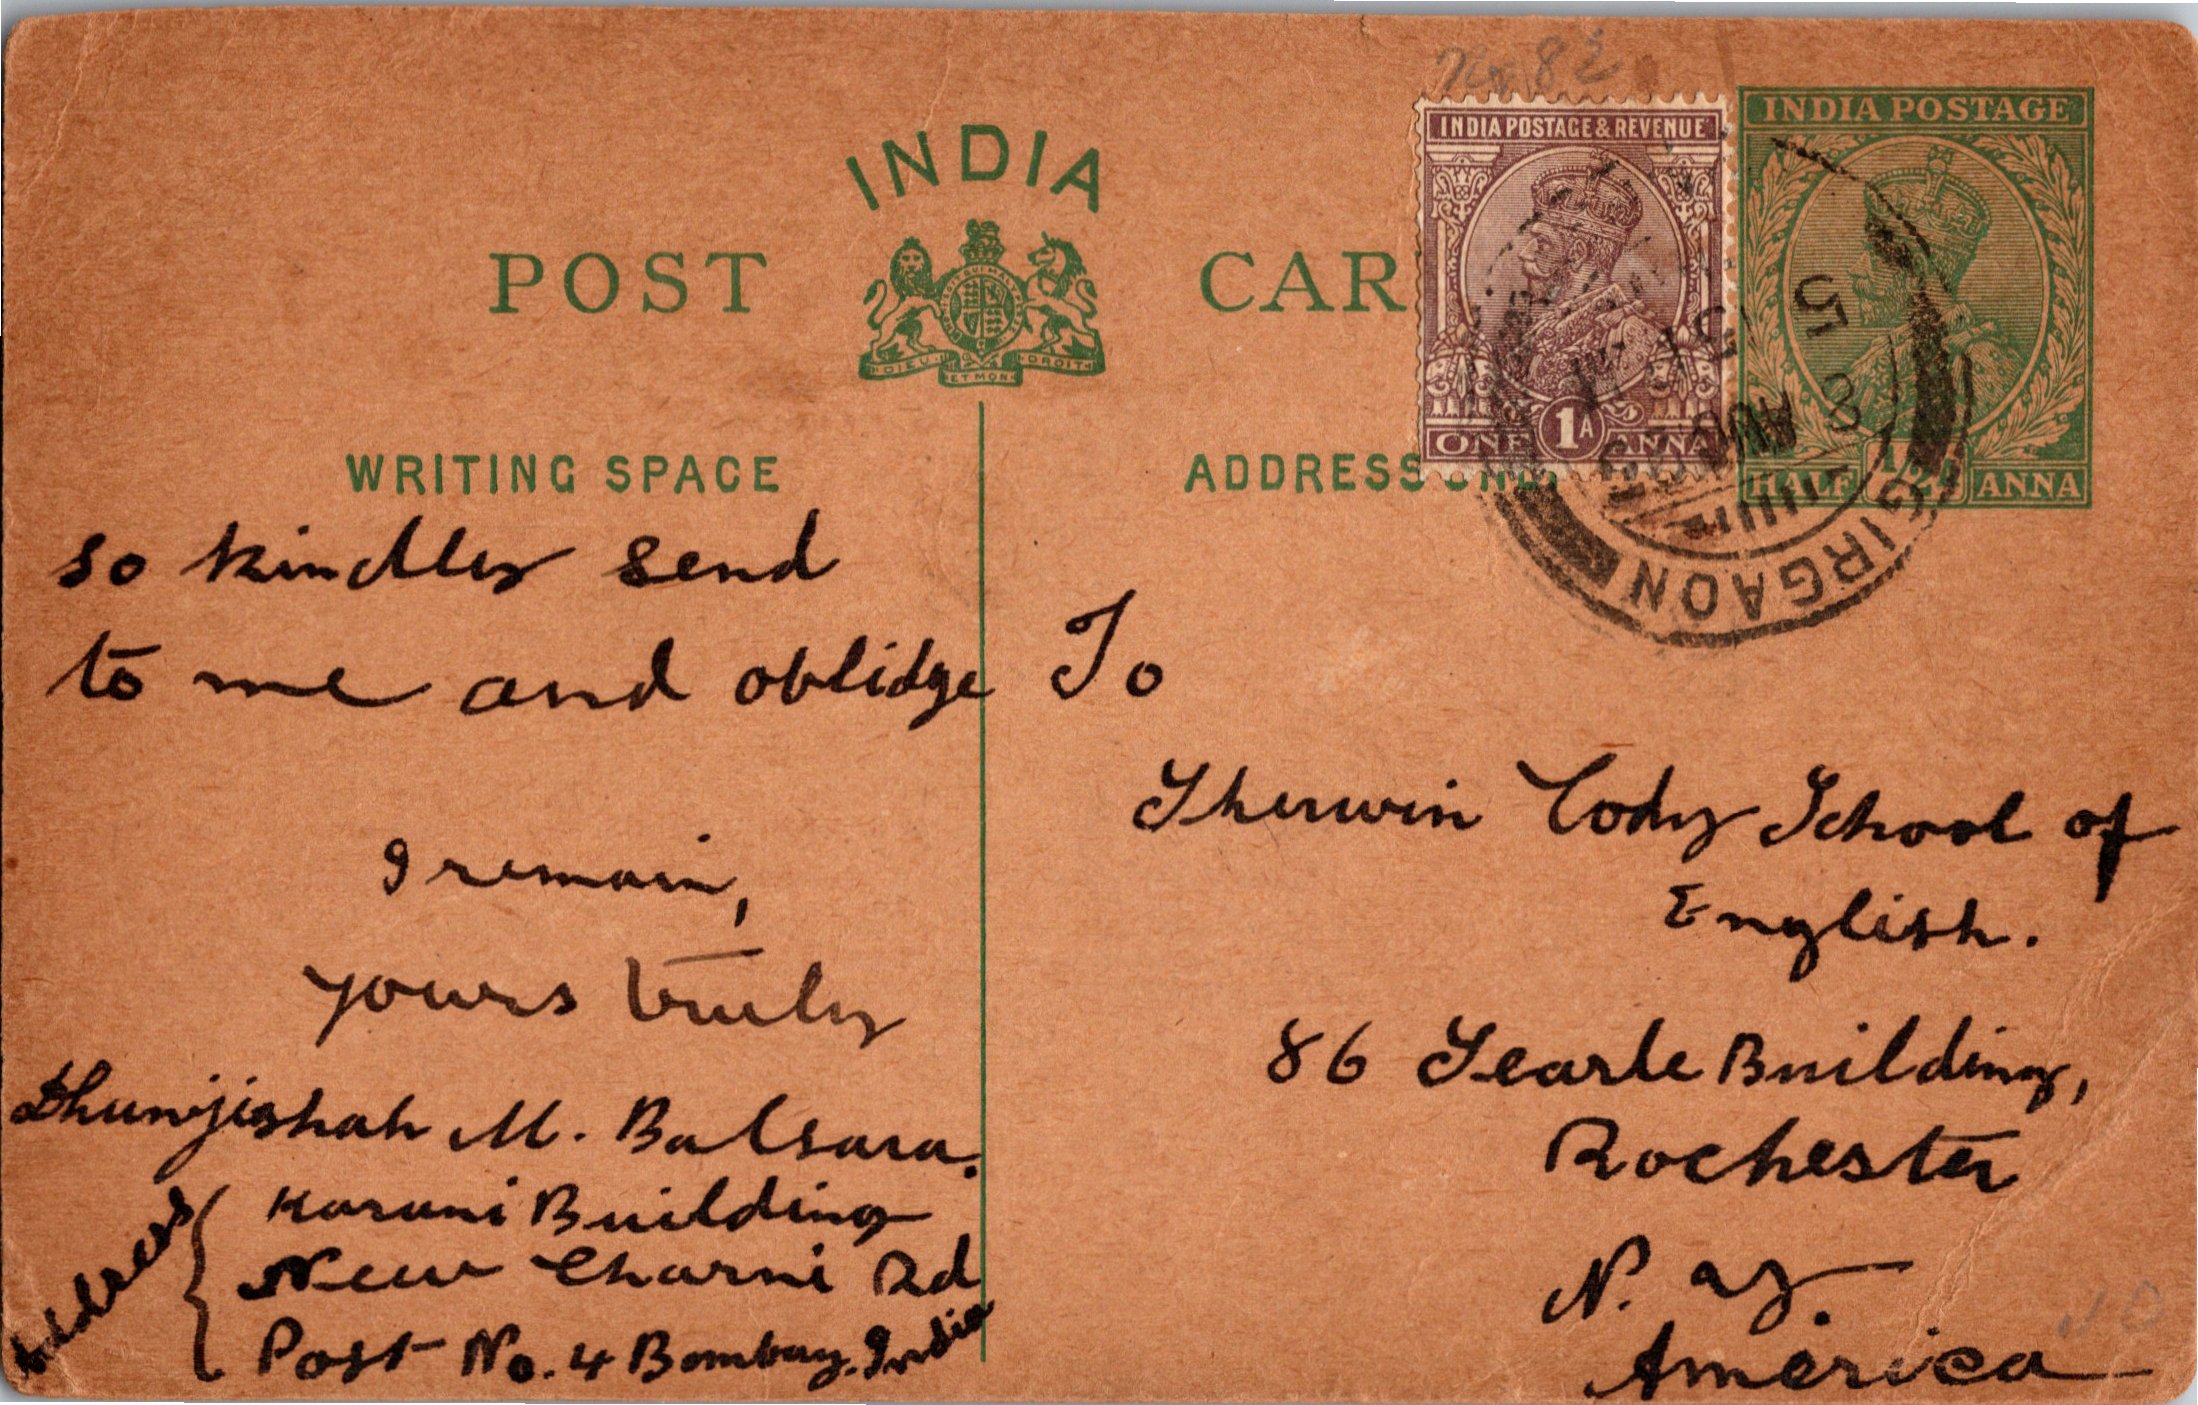 INDIA
POST CAR
INDIA POSTAGE & REVENUE
1A
ONE ANNA
INDIA POSTAGE
HALF ANNA
GIRGAON
8 AUG
5
DIEU ET MON DROIT
WRITING SPACE
so kindly send
to me and oblidge
I remain,
yours truly
Dhunjishah M. Balsara.
Address
Karani Building
New Charni Rd
Post No. 4 Bombay. India
ADDRESS ONLY
To
Sherwin Cody School of
English.
86 Searle Building,
Rochester
N. Y.
America